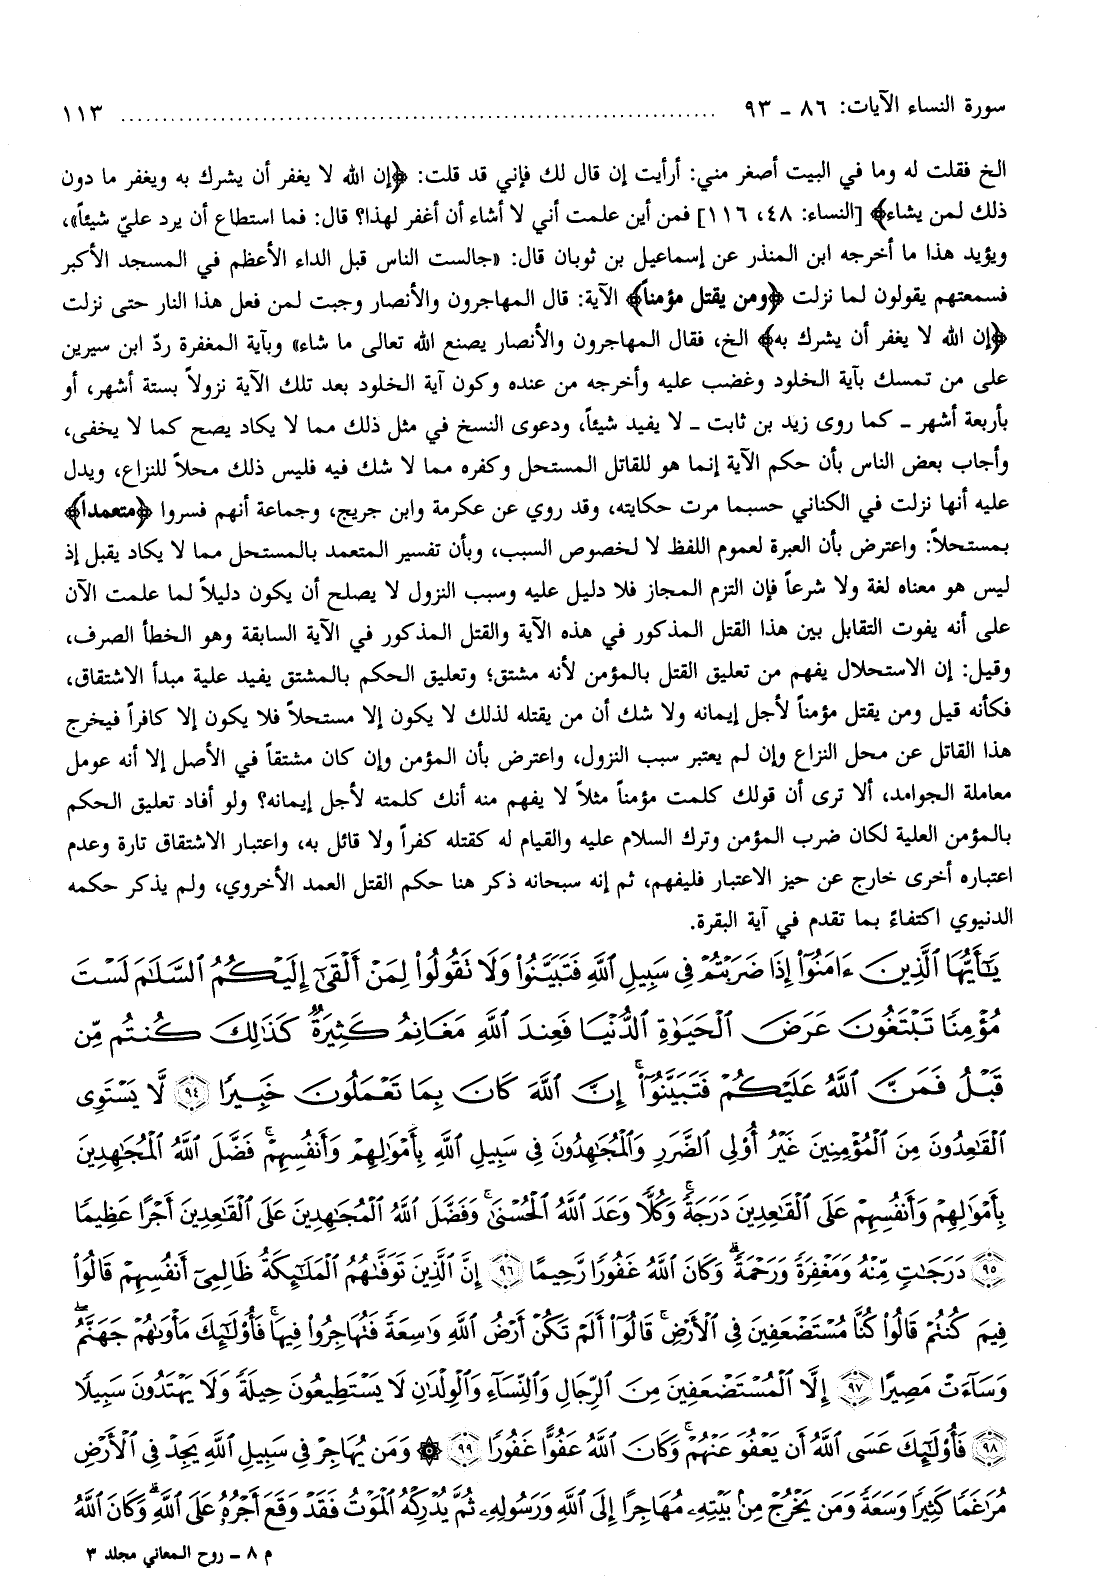 سورة النساء الآيات: ٨٦ ـ ٩٣ ........................................................................ ١١٣
الخ فقلت له وما في البيت أصغر مني: أرأيت إن قال لك فإني قد قلت: ﴿إن الله لا يغفر أن يشرك به ويغفر ما دون
ذلك لمن يشاء﴾ [النساء: ٤٨، ١١٦] فمن أين علمت أني لا أشاء أن أغفر لهذا؟ قال: فما استطاع أن يرد عليّ شيئاً»،
ويؤيد هذا ما أخرجه ابن المنذر عن إسماعيل بن ثوبان قال: «جالست الناس قبل الداء الأعظم في المسجد الأكبر
فسمعتهم يقولون لما نزلت ﴿ومن يقتل مؤمناً﴾ الآية: قال المهاجرون والأنصار وجبت لمن فعل هذا النار حتى نزلت
﴿إن الله لا يغفر أن يشرك به﴾ الخ، فقال المهاجرون والأنصار يصنع الله تعالى ما شاء» وبآية المغفرة ردّ ابن سيرين
على من تمسك بآية الخلود وغضب عليه وأخرجه من عنده وكون آية الخلود بعد تلك الآية نزولاً بستة أشهر، أو
بأربعة أشهر ـ كما روى زيد بن ثابت ـ لا يفيد شيئاً، ودعوى النسخ في مثل ذلك مما لا يكاد يصح كما لا يخفى،
وأجاب بعض الناس بأن حكم الآية إنما هو للقاتل المستحل وكفره مما لا شك فيه فليس ذلك محلاً للنزاع، ويدل
عليه أنها نزلت في الكناني حسبما مرت حكايته، وقد روي عن عكرمة وابن جريج، وجماعة أنهم فسروا ﴿متعمداً﴾
بمستحلاً: واعترض بأن العبرة لعموم اللفظ لا لخصوص السبب، وبأن تفسير المتعمد بالمستحل مما لا يكاد يقبل إذ
ليس هو معناه لغة ولا شرعاً فإن التزم المجاز فلا دليل عليه وسبب النزول لا يصلح أن يكون دليلاً لما علمت الآن
على أنه يفوت التقابل بين هذا القتل المذكور في هذه الآية والقتل المذكور في الآية السابقة وهو الخطأ الصرف،
وقيل: إن الاستحلال يفهم من تعليق القتل بالمؤمن لأنه مشتق؛ وتعليق الحكم بالمشتق يفيد علية مبدأ الاشتقاق،
فكأنه قيل ومن يقتل مؤمناً لأجل إيمانه ولا شك أن من يقتله لذلك لا يكون إلا مستحلاً فلا يكون إلا كافراً فيخرج
هذا القاتل عن محل النزاع وإن لم يعتبر سبب النزول، واعترض بأن المؤمن وإن كان مشتقاً في الأصل إلا أنه عومل
معاملة الجوامد، ألا ترى أن قولك كلمت مؤمناً مثلاً لا يفهم منه أنك كلمته لأجل إيمانه؟ ولو أفاد تعليق الحكم
بالمؤمن العلية لكان ضرب المؤمن وترك السلام عليه والقيام له كقتله كفراً ولا قائل به، واعتبار الاشتقاق تارة وعدم
اعتباره أخرى خارج عن حيز الاعتبار فليفهم، ثم إنه سبحانه ذكر هنا حكم القتل العمد الأخروي، ولم يذكر حكمه
الدنيوي اكتفاءً بما تقدم في آية البقرة.
يَـٰٓأَيُّهَا ٱلَّذِينَ ءَامَنُوٓا۟ إِذَا ضَرَبْتُمْ فِى سَبِيلِ ٱللَّهِ فَتَبَيَّنُوا۟ وَلَا تَقُولُوا۟ لِمَنْ أَلْقَىٰٓ إِلَيْكُمُ ٱلسَّلَـٰمَ لَسْتَ
مُؤْمِنًا تَبْتَغُونَ عَرَضَ ٱلْحَيَوٰةِ ٱلدُّنْيَا فَعِندَ ٱللَّهِ مَغَانِمُ كَثِيرَةٌ ۚ كَذَٰلِكَ كُنتُم مِّن
قَبْلُ فَمَنَّ ٱللَّهُ عَلَيْكُمْ فَتَبَيَّنُوٓا۟ ۚ إِنَّ ٱللَّهَ كَانَ بِمَا تَعْمَلُونَ خَبِيرًا ﴿٩٤﴾ لَّا يَسْتَوِى
ٱلْقَـٰعِدُونَ مِنَ ٱلْمُؤْمِنِينَ غَيْرُ أُو۟لِى ٱلضَّرَرِ وَٱلْمُجَـٰهِدُونَ فِى سَبِيلِ ٱللَّهِ بِأَمْوَٰلِهِمْ وَأَنفُسِهِمْ ۚ فَضَّلَ ٱللَّهُ ٱلْمُجَـٰهِدِينَ
بِأَمْوَٰلِهِمْ وَأَنفُسِهِمْ عَلَى ٱلْقَـٰعِدِينَ دَرَجَةً ۚ وَكُلًّا وَعَدَ ٱللَّهُ ٱلْحُسْنَىٰ ۚ وَفَضَّلَ ٱللَّهُ ٱلْمُجَـٰهِدِينَ عَلَى ٱلْقَـٰعِدِينَ أَجْرًا عَظِيمًا
﴿٩٥﴾ دَرَجَـٰتٍ مِّنْهُ وَمَغْفِرَةً وَرَحْمَةً ۚ وَكَانَ ٱللَّهُ غَفُورًا رَّحِيمًا ﴿٩٦﴾ إِنَّ ٱلَّذِينَ تَوَفَّىٰهُمُ ٱلْمَلَـٰٓئِكَةُ ظَالِمِىٓ أَنفُسِهِمْ قَالُوا۟
فِيمَ كُنتُمْ قَالُوا۟ كُنَّا مُسْتَضْعَفِينَ فِى ٱلْأَرْضِ ۚ قَالُوٓا۟ أَلَمْ تَكُنْ أَرْضُ ٱللَّهِ وَٰسِعَةً فَتُهَاجِرُوا۟ فِيهَا ۚ فَأُو۟لَـٰٓئِكَ مَأْوَىٰهُمْ جَهَنَّمُ ۖ
وَسَآءَتْ مَصِيرًا ﴿٩٧﴾ إِلَّا ٱلْمُسْتَضْعَفِينَ مِنَ ٱلرِّجَالِ وَٱلنِّسَآءِ وَٱلْوِلْدَٰنِ لَا يَسْتَطِيعُونَ حِيلَةً وَلَا يَهْتَدُونَ سَبِيلًا
﴿٩٨﴾ فَأُو۟لَـٰٓئِكَ عَسَى ٱللَّهُ أَن يَعْفُوَ عَنْهُمْ ۚ وَكَانَ ٱللَّهُ عَفُوًّا غَفُورًا ﴿٩٩﴾ ۞ وَمَن يُهَاجِرْ فِى سَبِيلِ ٱللَّهِ يَجِدْ فِى ٱلْأَرْضِ
مُرَٰغَمًا كَثِيرًا وَسَعَةً ۚ وَمَن يَخْرُجْ مِنۢ بَيْتِهِۦ مُهَاجِرًا إِلَى ٱللَّهِ وَرَسُولِهِۦ ثُمَّ يُدْرِكْهُ ٱلْمَوْتُ فَقَدْ وَقَعَ أَجْرُهُۥ عَلَى ٱللَّهِ ۗ وَكَانَ ٱللَّهُ
م ٨ ـ روح المعاني مجلد ٣